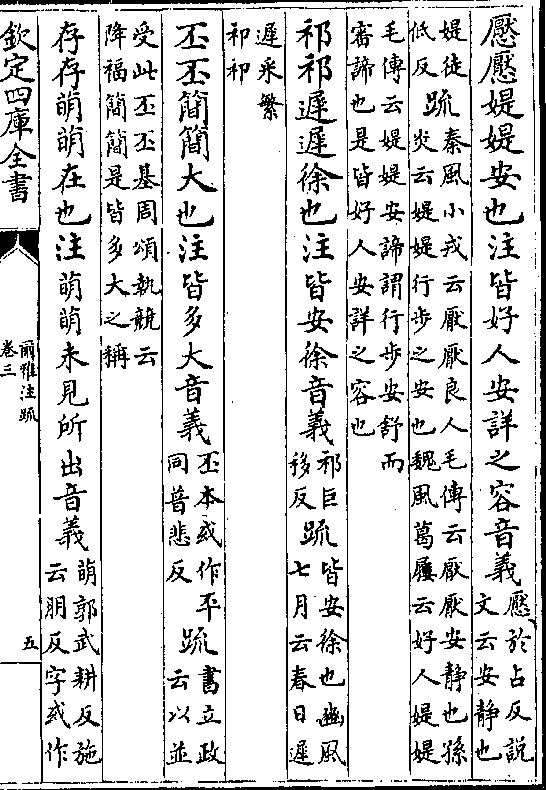 懕懕媞媞安也注皆好人安詳之容音義懕於占反說
文云安靜也
媞徒
低反疏秦風小戎云厭厭良人毛傳云厭厭安靜也孫
炎云媞媞行步之安也魏風葛屨云好人媞媞
毛傳云媞媞安諦謂行步安舒而
審諦也是皆好人安詳之容也
祁祁遲遲徐也注皆安徐音義祁巨
移反疏皆安徐也豳風
七月云春日遲
遲采蘩
祁祁
丕丕簡簡大也注皆多大音義丕本或作平
同普悲反疏書立政
云以並
受此丕丕基周頌執競云
降福簡簡是皆多大之稱
存存萌萌在也注萌萌未見所出音義萌郭武耕反施
云朋反字或作
欽定四庫全書
爾雅注疏
卷三
五